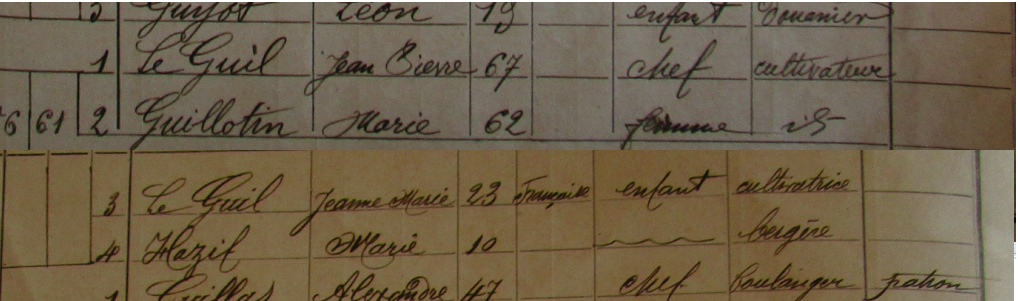 3 Guyot Léon 19 enfant Douanier
1 Le Guil Jean Pierre 67 chef cultivateur
61 2 Guillotin Marie 62 femme id
3 Le Guil Jeanne Marie 23 Française enfant cultivatrice
4 Hazif Marie 10 bergère
1 Guillas Alexandre 47 chef boulanger patron